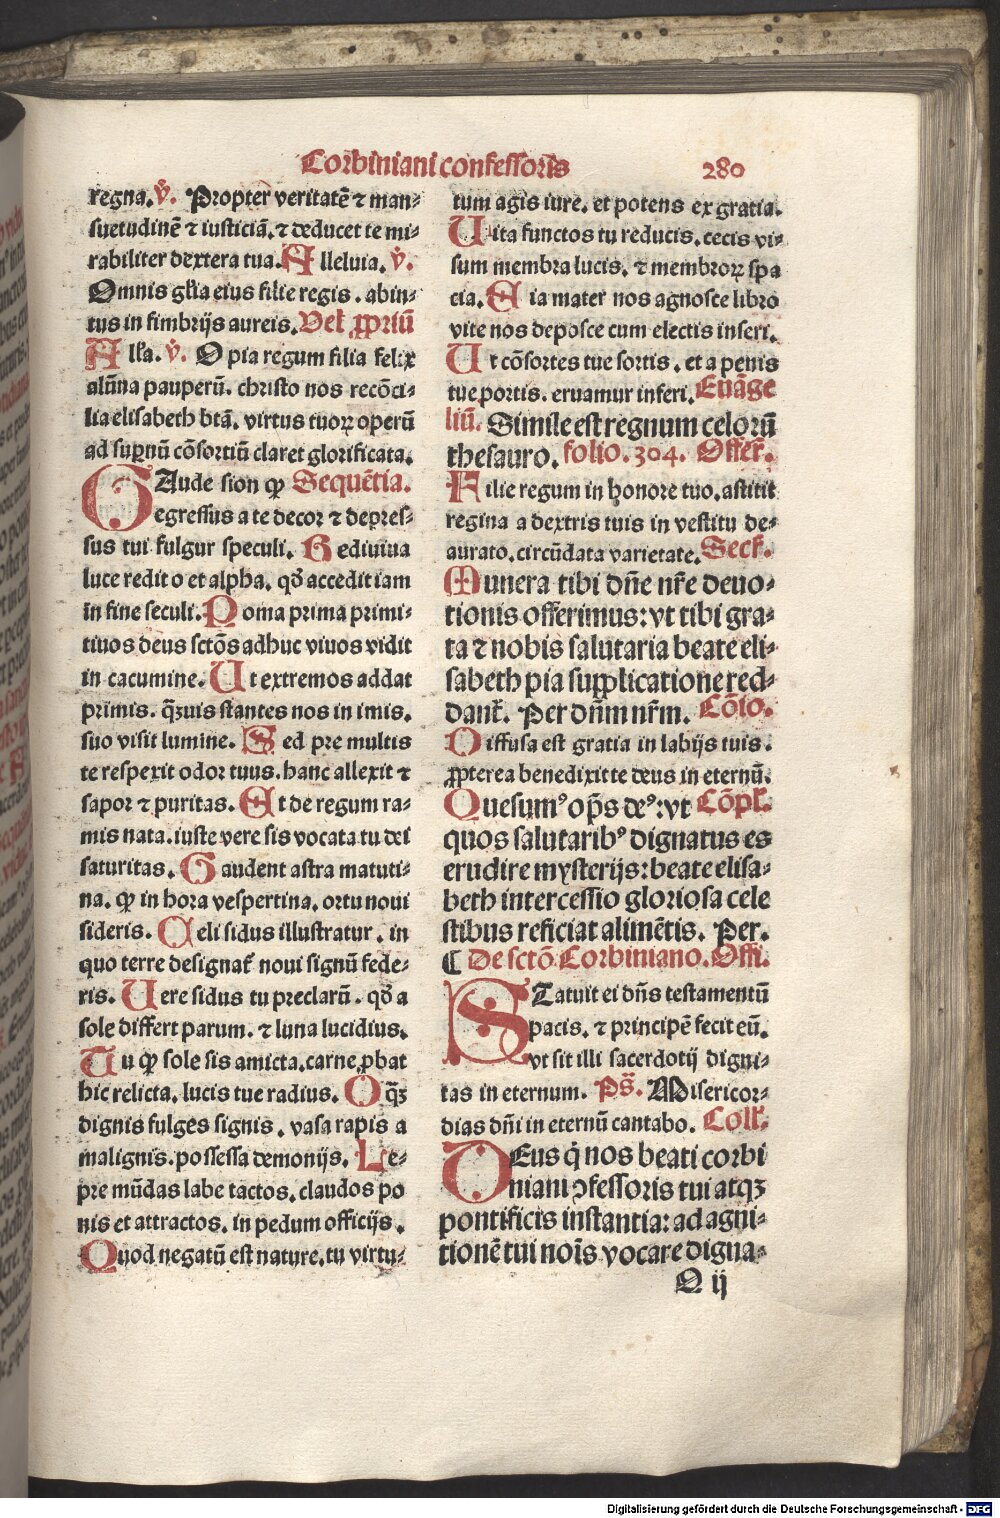 Corbiniani confessoris 280
regna. v̊. Propter veritatē ⁊ man-
suetudinē ⁊ iusticiā. ⁊ deducet te mi-
rabiliter dextera tua. Alleluia. v̊.
Omnis gl̄ia eius filie regis. abin-
tus in fimbrijs aureis. Vel ꝓpriū
All̄a. v̊. O pia regum filia felix
alūna pauperū. christo nos recōci-
lia elisabeth btā. virtus tuoꝝ operū
ad suꝑnū cōsortiū claret glorificata.
GAude sion ꝙ Sequētia.
egressus a te decor ⁊ depres-
sus tui fulgur speculi. Rediuiua
luce redit o et alpha. qd̓ accedit iam
in fine seculi. Roma prima primi-
tiuos deus sctōs adhuc viuos vidit
in cacumine. Ut extremos addat
primis. q̄ꝫuis stantes nos in imis.
suo visit lumine. Sed pre multis
te respexit odor tuus. hanc allexit ⁊
sapor ⁊ puritas. Et de regum ra-
mis nata. iuste vere sis vocata tu dei
saturitas. Gaudent astra matuti-
na. ꝙ in hora vespertina. ortu noui
sideris. Celi sidus illustratur. in
quo terre designat̄ noui signū fede-
ris. Uere sidus tu preclarū. qd̓ a
sole differt parum. ⁊ luna lucidius.
Tu ꝙ sole sis amicta. carne ꝓbat
hic relicta. lucis tue radius. O q̄ꝫ
dignis fulges signis. vasa rapis a
malignis. possessa demonijs. Le-
pre mūdas labe tactos. claudos po
nis et attractos. in pedum officijs.
Quod negatū est nature. tu virtu-
tum agis iure. et potens ex gratia.
Uita functos tu reducis. cecis vi-
sum membra lucis. ⁊ membroꝝ spa
cia. Eia mater nos agnosce libro
vite nos deposce cum electis inseri.
Ut cōsortes tue sortis. et a penis
tue portis. eruamur inferi. Euāge
liū. Simile est regnum celorū
thesauro. folio. 304. Offer̄.
Filie regum in honore tuo. astitit
regina a dextris tuis in vestitu de-
aurato. circūdata varietate. Secr̄.
Munera tibi dn̄e nr̄e deuo-
tionis offerimus: vt tibi gra-
ta ⁊ nobis salutaria beate eli-
sabeth pia supplicatione red-
dant̄. Per dn̄m nr̄m. Cōio.
Diffusa est gratia in labijs tuis.
ꝓpterea benedixit te deus in eternū.
Quesumꝰ op̄s deꝰ: vt Cōpl̄.
quos salutaribꝰ dignatus es
erudire mysterijs: beate elisa-
beth intercessio gloriosa cele
stibus reficiat alimētis. Per.
¶ De sctō Corbiniano. Offi.
STatuit ei dn̄s testamentū
pacis. ⁊ principē fecit eū.
vt sit illi sacerdotij digni-
tas in eternum. Ps̄. Misericor-
dias dn̄i in eternū cantabo. Coll̄.
DEus q̄ nos beati corbi
niani ꝯfessoris tui atqꝫ
pontificis instantia: ad agni-
tionē tui nois̄ vocare digna-
O ij
Digitalisierung gefördert durch die Deutsche Forschungsgemeinschaft - DFG